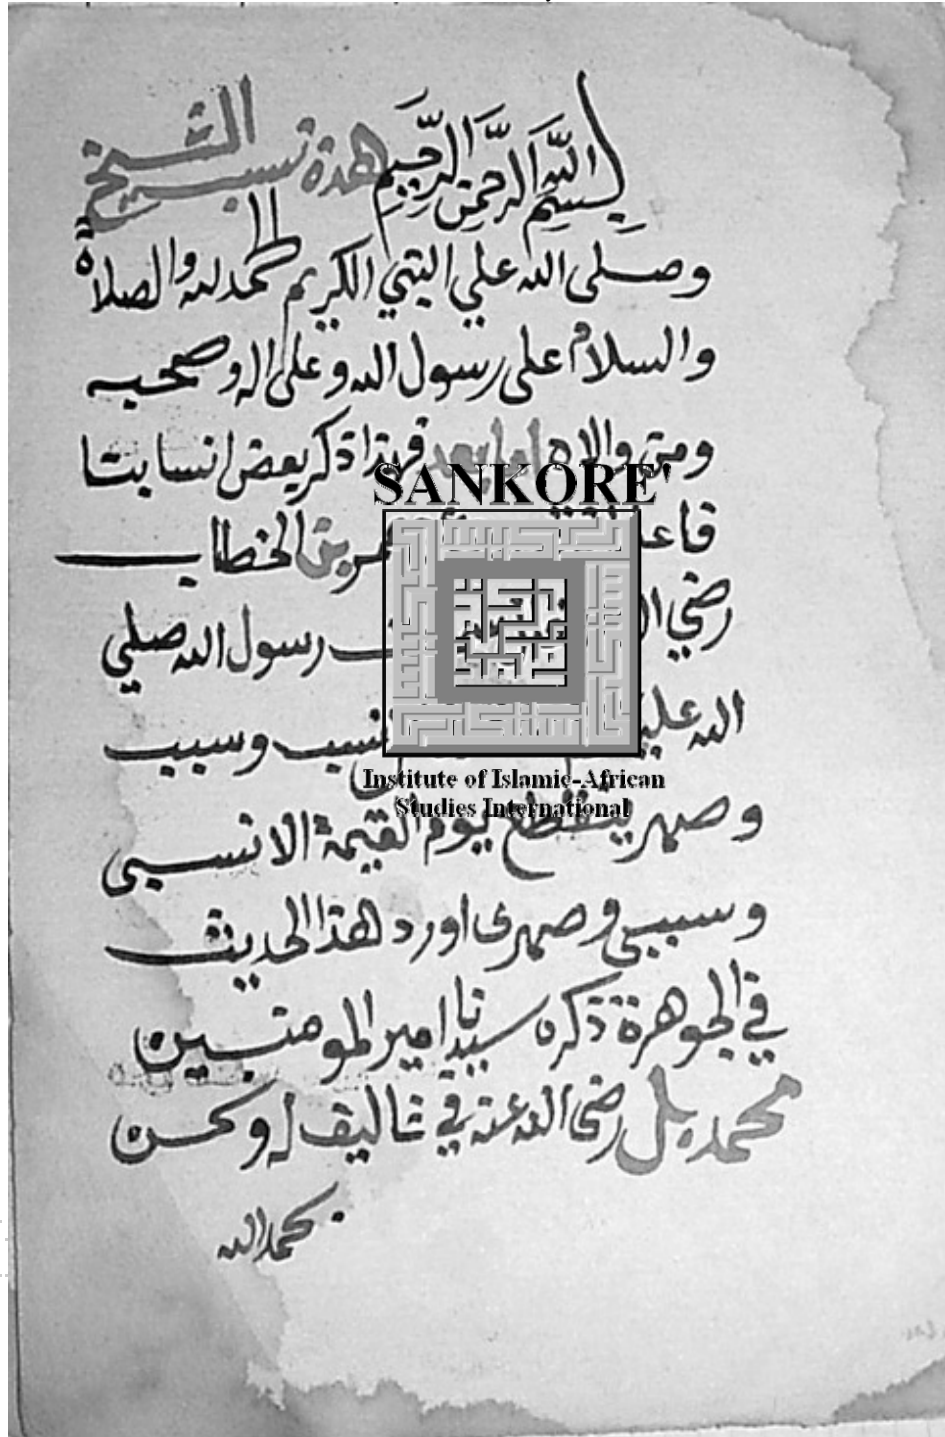 بِسْمِ اللَّهِ الرَّحْمَنِ الرَّحِيمِ هذه نسب الشيخ
وصلى الله علي النبي الكريم الحمد لله والصلاة
والسلام على رسول الله وعلى اله وصحبه
ومن والاه اما بعد فهذا ذكر بعض انسابنا
عمر بن الخطاب
رضي رسول الله صلي
الله عليه نسب وسبب
وصهر ينقطع يوم القيمة الا نسبي
وسببي وصهرى اورد هذا الحديث
في الجوهرة ذكره سيدنا امير المومنين
محمد بل رضى الله عنه في تاليف له ونحن
بحمد الله
SANKORE'
Institute of Islamic-African
Studies International